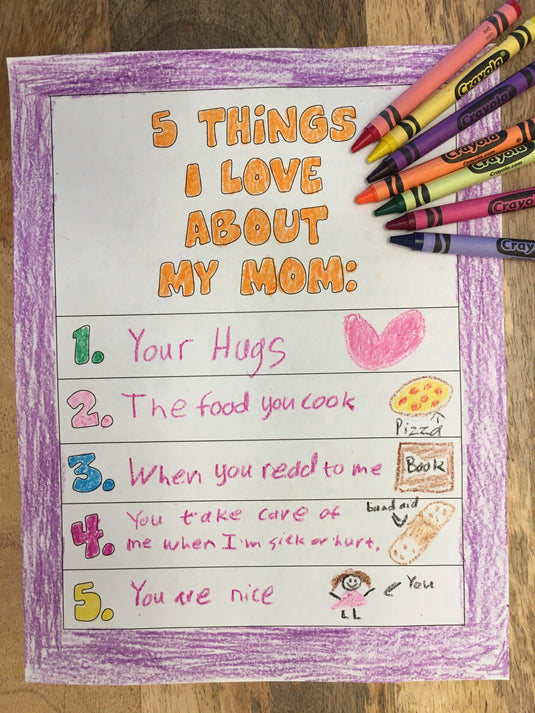 5 THiNGS
I LOVE
ABOUT
MY MOM:
1. Your Hugs
2. The food you cook
Pizza
3. When you redd to me
Book
4. You take care of
me when I'm sick or hurt.
band aid
5. You are nice
You
Crayola
Crayola
Crayola
Crayola
Crayola.com
Crayola
Crayola.com
Crayola
Cray